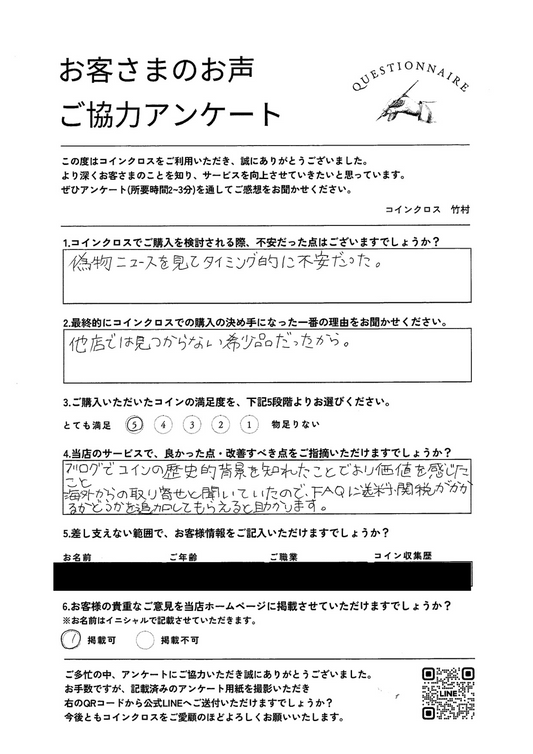 お客さまのお声
ご協力アンケート
QUESTIONNAIRE
この度はコインクロスをご利用いただき、誠にありがとうございました。
より深くお客さまのことを知り、サービスを向上させていきたいと思っています。
ぜひアンケート(所要時間2~3分)を通してご感想をお聞かせください。
コインクロス 竹村
1.コインクロスでご購入を検討される際、不安だった点はございますでしょうか？
偽物ニュースを見てタイミング的に不安だった。
2.最終的にコインクロスでの購入の決め手になった一番の理由をお聞かせください。
他店では見つからない希少品だったから。
3.ご購入いただいたコインの満足度を、下記5段階よりお選びください。
とても満足 5 4 3 2 1 物足りない
4.当店のサービスで、良かった点・改善すべき点をご指摘いただけますでしょうか？
ブログでコインの歴史的背景を知れたことでより価値を感じた
こと
海外からの取り寄せと聞いていたので、FAQに送料、関税がかか
るかどうかを追加してもらえると助かります。
5.差し支えない範囲で、お客様情報をご記入いただけますでしょうか？
お名前 ご年齢 ご職業 コイン収集歴
6.お客様の貴重なご意見を当店ホームページに掲載させていただけますでしょうか？
※お名前はイニシャルで記載させていただきます。
掲載可 掲載不可
ご多忙の中、アンケートにご協力いただき誠にありがとうございました。
お手数ですが、記載済みのアンケート用紙を撮影いただき
右のQRコードから公式LINEへご送付いただけますでしょうか？
今後ともコインクロスをご愛顧のほどよろしくお願いいたします。
LINE